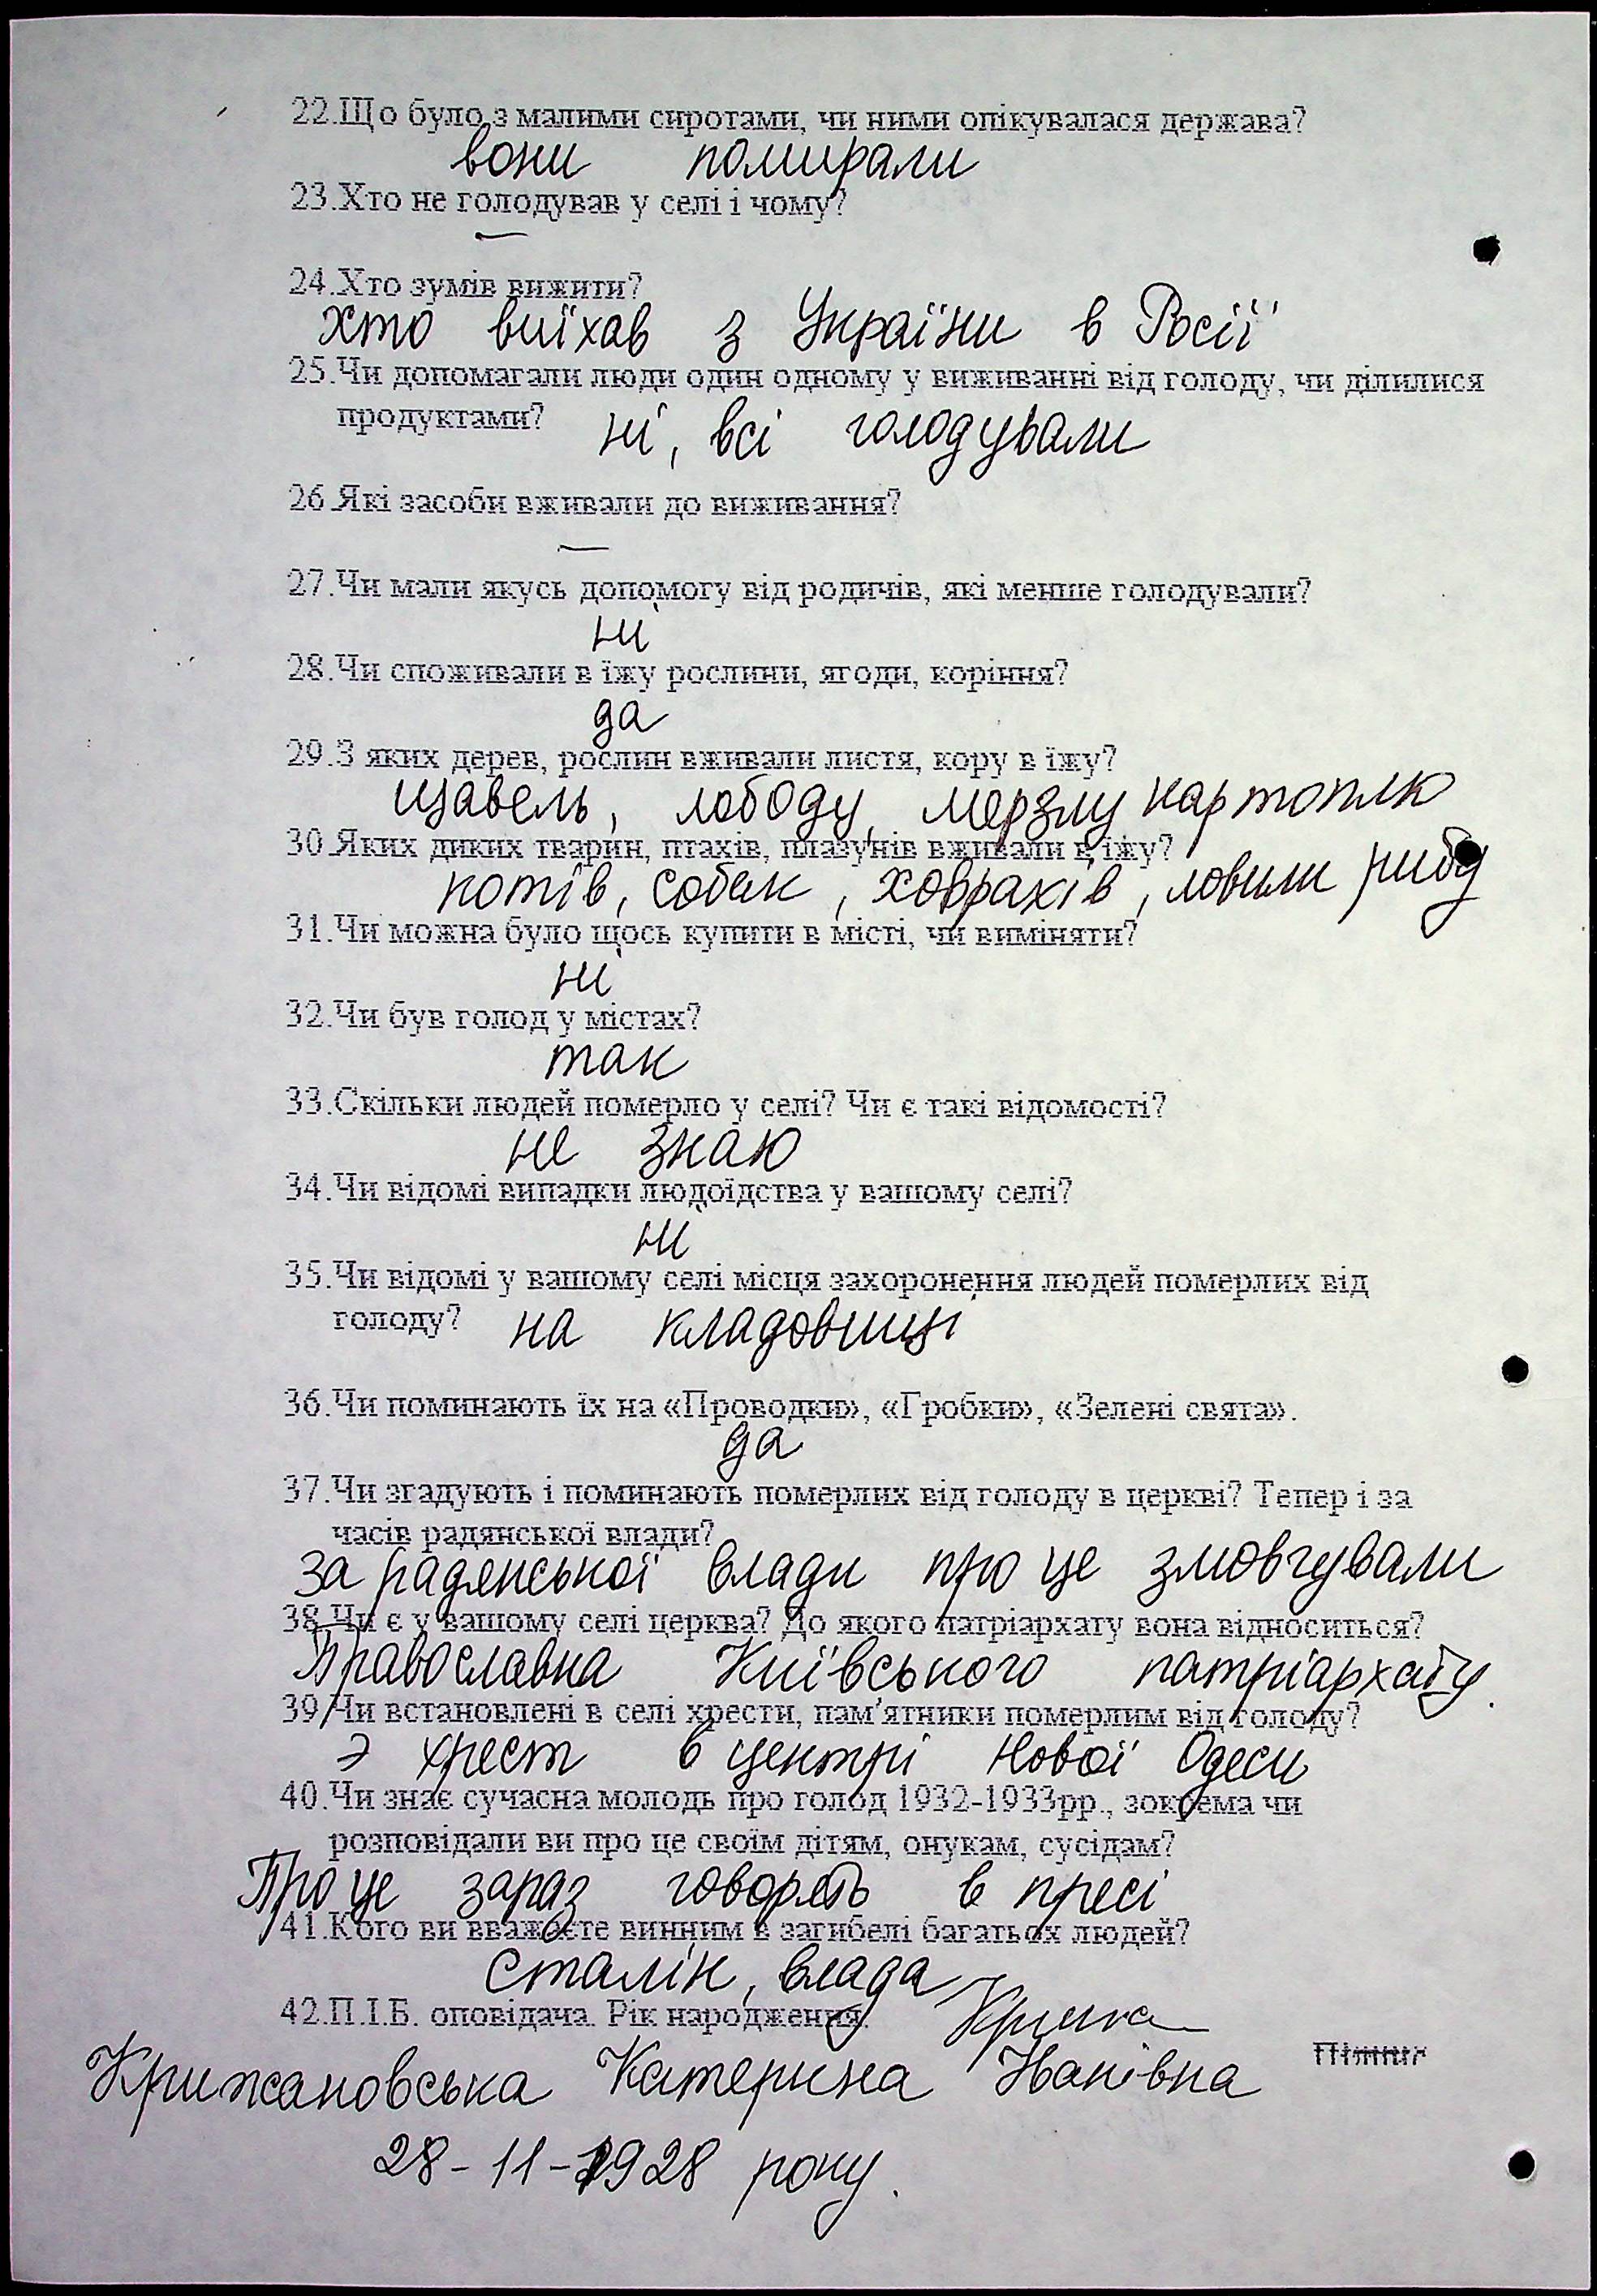 22.Що було з малими сиротами, чи ними опікувалася держава?
вони помирали
23.Хто не голодував у селі і чому?
—
24.Хто зумів вижити?
хто виїхав з України в Росії
25.Чи допомагали люди один одному у виживанні від голоду, чи ділилися
продуктами? ні, всі голодували
26.Які засоби вживали до виживання?
—
27.Чи мали якусь допомогу від родичів, які менше голодували?
ні
28.Чи споживали в їжу рослини, ягоди, коріння?
да
29.З яких дерев, рослин вживали листя, кору в їжу?
щавель, лободу, мерзлу картоплю
30.Яких диких тварин, птахів, плазунів вживали в їжу?
котів, собак, ховрахів, ловили рибу
31.Чи можна було щось купити в місті, чи виміняти?
ні
32.Чи був голод у містах?
так
33.Скільки людей померло у селі? Чи є такі відомості?
не знаю
34.Чи відомі випадки людоїдства у вашому селі?
ні
35.Чи відомі у вашому селі місця захоронення людей померлих від
голоду? на кладовищі
36.Чи поминають їх на «Проводки», «Гробки», «Зелені свята».
да
37.Чи згадують і поминають померлих від голоду в церкві? Тепер і за
часів радянської влади?
за радянської влади про це змовчували
38.Чи є у вашому селі церква? До якого патріархату вона відноситься?
Православна Київського патріархату.
39.Чи встановлені в селі хрести, пам'ятники померлим від голоду?
э хрест в центрі Нової Одеси
40.Чи знає сучасна молодь про голод 1932-1933рр., зокрема чи
розповідали ви про це своїм дітям, онукам, сусідам?
Про це зараз говорять в пресі
41.Кого ви вважаєте винним в загибелі багатьох людей?
Сталін, влада
42.П.І.Б. оповідача. Рік народження.
Крижановська Катерина Іванівна
28-11-1928 року.